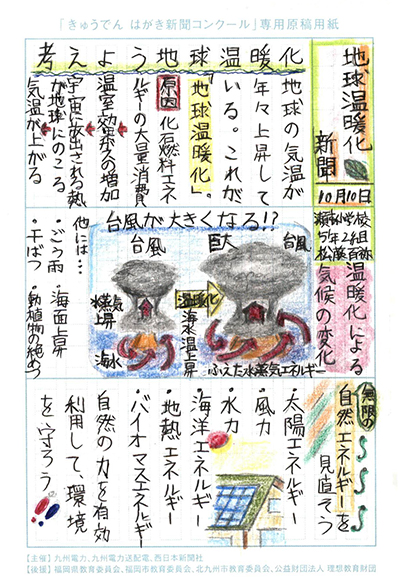 「きゅうでん はがき新聞コンクール」専用原稿用紙
地球温暖化
新聞
10月10日
小学校
5年2組
地球温暖化
考えよう
地球の気温が
年々上昇して
いる。これが
「地球温暖化」。
原因 化石燃料エネ
ルギーの大量消費
温室効果ガスの増加
宇宙に放出される熱
が地球にのこる
気温が上がる
温暖化による
気候の変化
台風が大きくなる!?
台風
巨大
台風
水蒸気
上昇
海水
温暖化
海水温上昇
ふえた水蒸気エネルギー
他には…
・ごう雨
・海面上昇
・干ばつ
・動植物の絶めつ
無限の
自然エネルギーを
見直そう
・太陽エネルギー
・風力
・水力
・海洋エネルギー
・地熱エネルギー
・バイオマスエネルギー
自然の力を有効
利用して、環境
を守ろう
【主催】九州電力、九州電力送配電、西日本新聞社
【後援】福岡県教育委員会、福岡市教育委員会、北九州市教育委員会、公益財団法人 理想教育財団